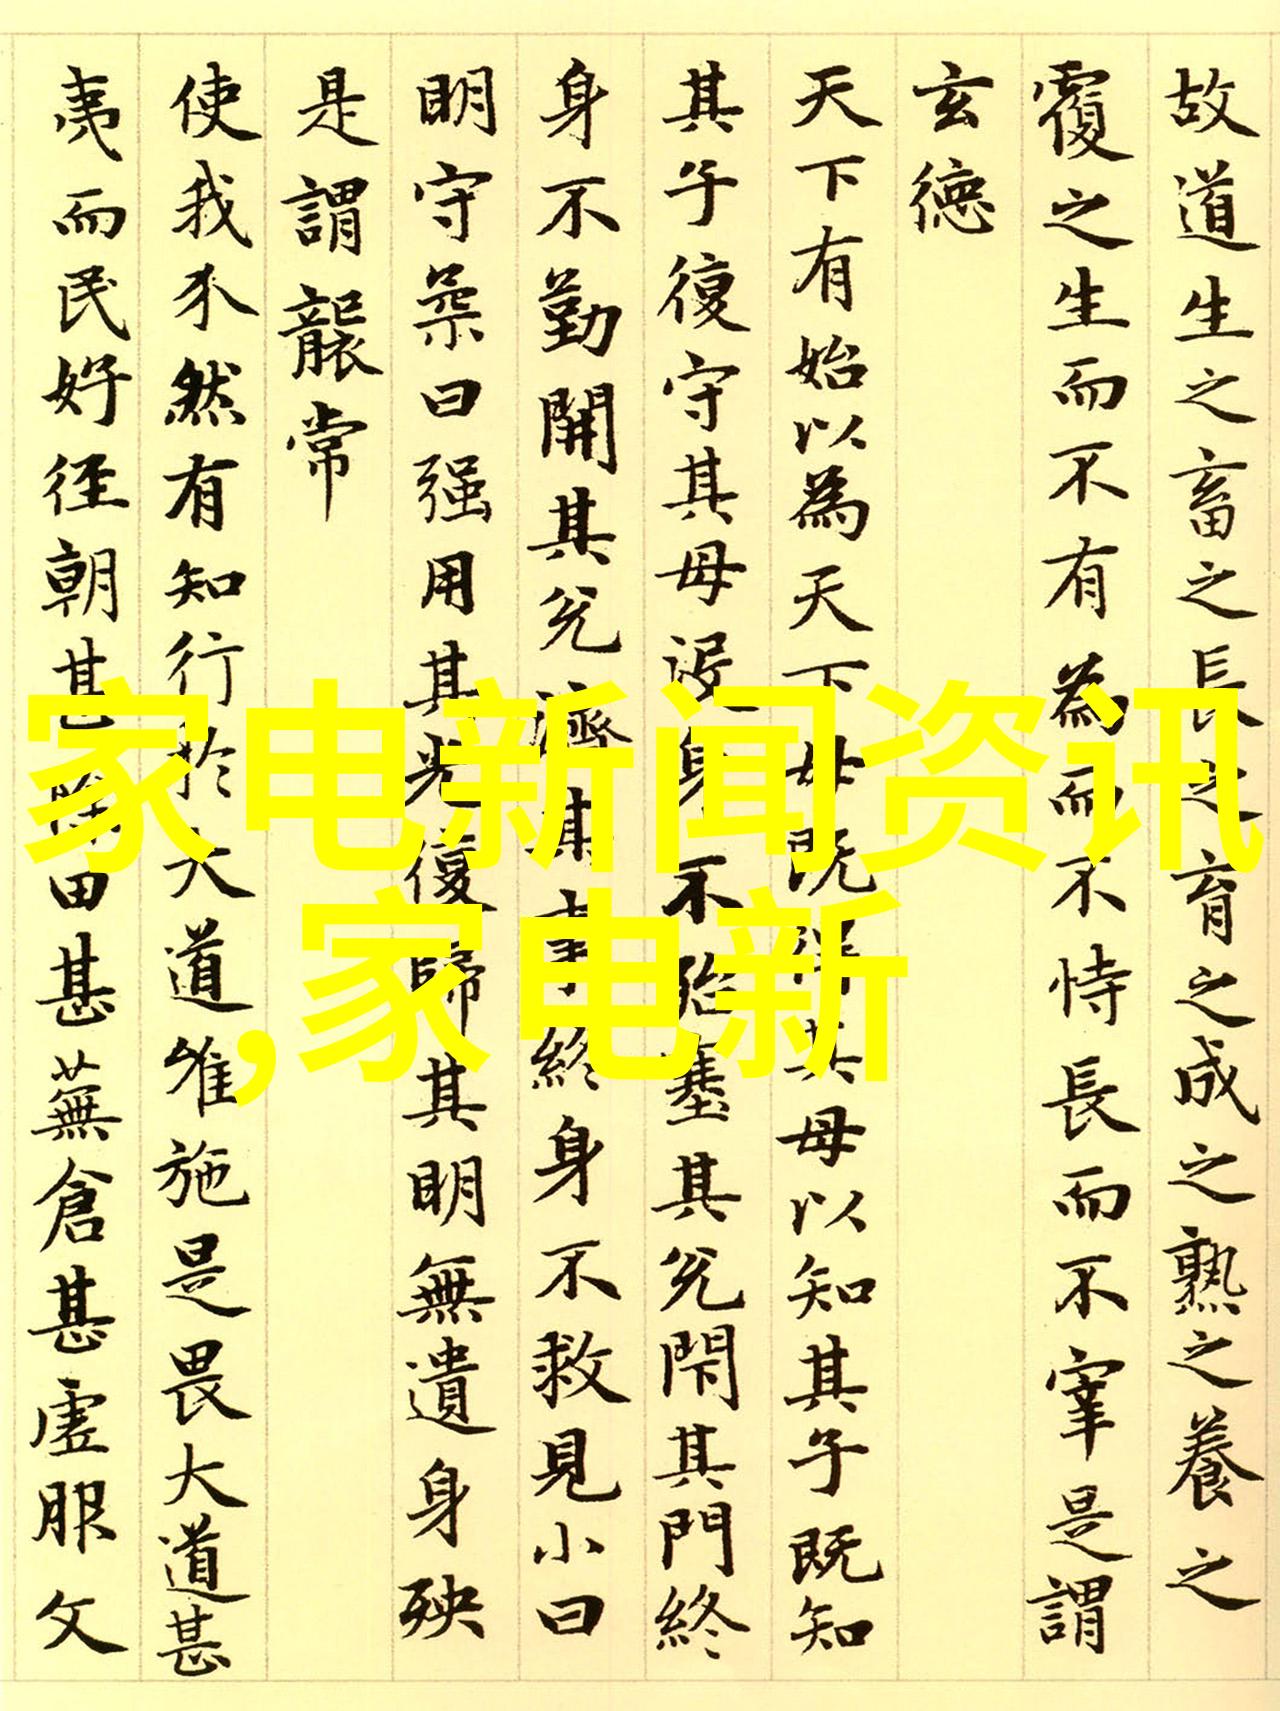 故道生之畜之長之育之成之熟之養之
覆之生而不有為而不恃長而不宰是謂
玄德
天下有始以為天下母既得其母以知其子既知
其子復守其母沒身不殆塞其兌閉其門終
身不勤開其兌濟其事終身不救見小曰
明守柔曰强用其光復歸其明無遺身殃
是謂襲常
使我介然有知行於大道唯施是畏大道甚
夷而民好徑朝甚除田甚蕪倉甚虛服文
家电新闻资讯
,家电新